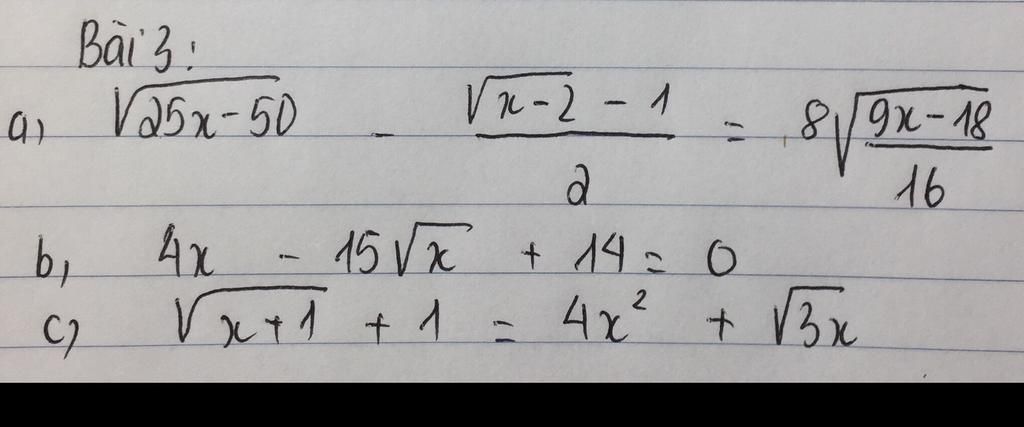 Bài 3:
a, √(25x-50) - (√(x-2) - 1)/2 = 8√((9x-18)/16)
b, 4x - 15√x + 14 = 0
c, √(x+1) + 1 = 4x² + √(3x)